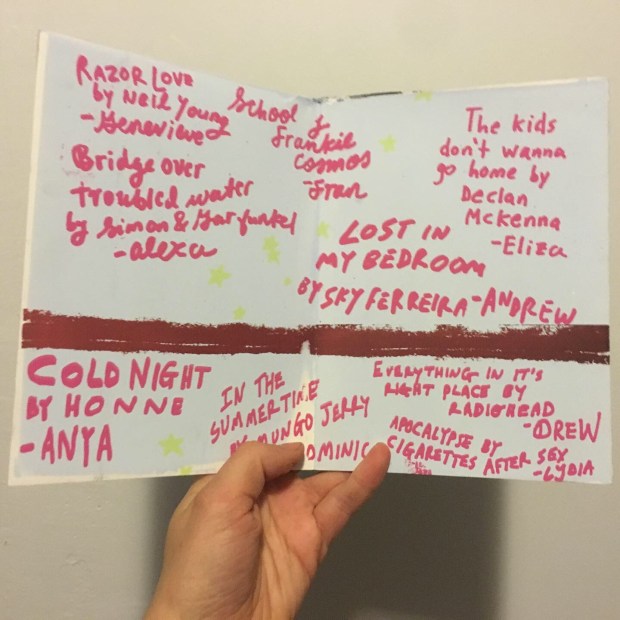 RAZOR LOVE
by Neil Young
-Genevieve
Bridge over
troubled water
by Simon & Garfunkel
-alexa
School by
Frankie
Cosmos
-Fran
The kids
don't wanna
go home by
Declan
McKenna
-Eliza
LOST IN
MY BEDROOM
BY SKY FERREIRA-ANDREW
COLD NIGHT
BY HONNE
-ANYA
IN THE
SUMMERTIME
BY MUNGO JERRY
DOMINIC
EVERYTHING IN IT'S
RIGHT PLACE BY
RADIOHEAD
-DREW
APOCALYPSE BY
CIGARETTES AFTER SEX
-LYDIA